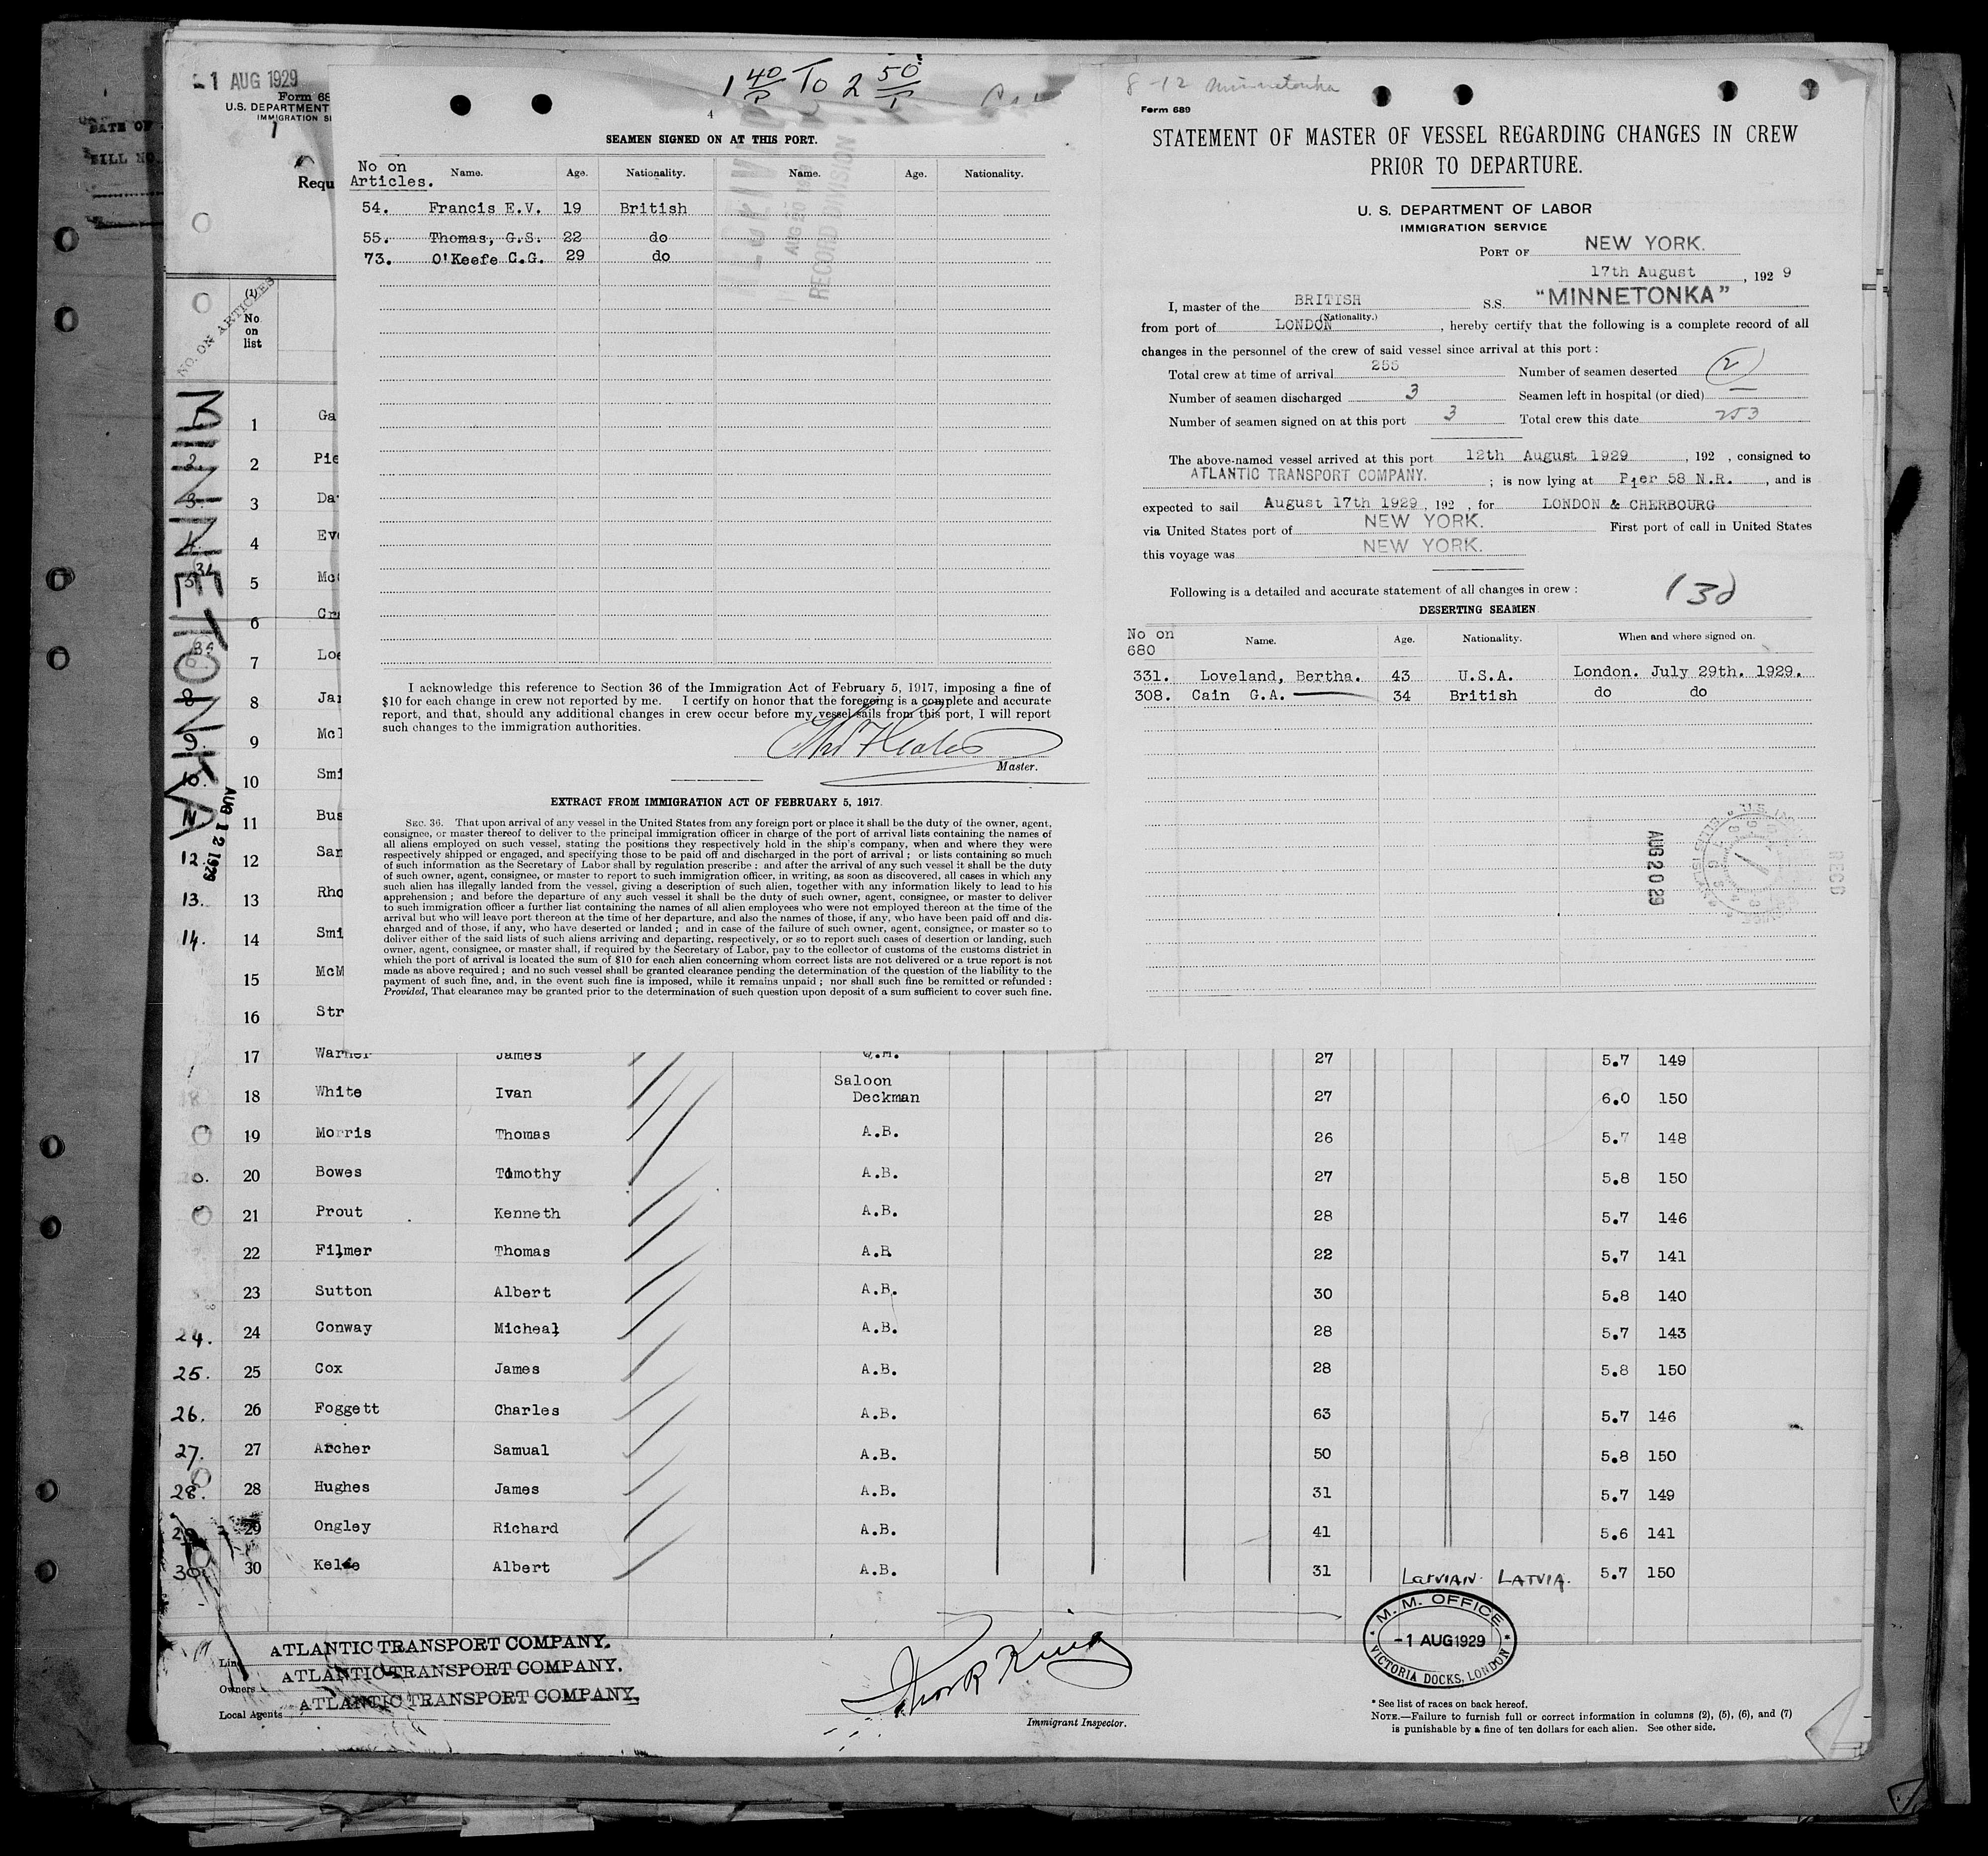 1 AUG 1929
Form 68
U.S. DEPARTMENT
IMMIGRATION SE
1
Requ
NO. ON ARTICLES
(1)
No. on list
MINNETONKA
AUG 12 1929
1 40/P To 2 50/P
4
SEAMEN SIGNED ON AT THIS PORT.
No on Articles. Name. Age. Nationality. Name. Age. Nationality.
54. Francis E.V. 19 British
55. Thomas, G.S. 22 do
73. O'Keefe C.G. 29 do
RECORD DIVISION
I acknowledge this reference to Section 36 of the Immigration Act of February 5, 1917, imposing a fine of
$10 for each change in crew not reported by me. I certify on honor that the foregoing is a complete and accurate
report, and that, should any additional changes in crew occur before my vessel sails from this port, I will report
such changes to the immigration authorities.
Master.
EXTRACT FROM IMMIGRATION ACT OF FEBRUARY 5, 1917.
SEC. 36. That upon arrival of any vessel in the United States from any foreign port or place it shall be the duty of the owner, agent,
consignee, or master thereof to deliver to the principal immigration officer in charge of the port of arrival lists containing the names of
all aliens employed on such vessel, stating the positions they respectively hold in the ship's company, when and where they were
respectively shipped or engaged, and specifying those to be paid off and discharged in the port of arrival; or lists containing so much
of such information as the Secretary of Labor shall by regulation prescribe; and after the arrival of any such vessel it shall be the duty
of such owner, agent, consignee, or master to report to such immigration officer, in writing, as soon as discovered, all cases in which any
such alien has illegally landed from the vessel, giving a description of such alien, together with any information likely to lead to his
apprehension; and before the departure of any such vessel it shall be the duty of such owner, agent, consignee, or master to deliver
to such immigration officer a further list containing the names of all alien employees who were not employed thereon at the time of the
arrival but who will leave port thereon at the time of her departure, and also the names of those, if any, who have been paid off and dis-
charged and of those, if any, who have deserted or landed; and in case of the failure of such owner, agent, consignee, or master so to
deliver either of the said lists of such aliens arriving and departing, respectively, or so to report such cases of desertion or landing, such
owner, agent, consignee, or master shall, if required by the Secretary of Labor, pay to the collector of customs of the customs district in
which the port of arrival is located the sum of $10 for each alien concerning whom correct lists are not delivered or a true report is not
made as above required; and no such vessel shall be granted clearance pending the determination of the question of the liability to the
payment of such fine, and, in the event such fine is imposed, while it remains unpaid; nor shall such fine be remitted or refunded:
Provided, That clearance may be granted prior to the determination of such question upon deposit of a sum sufficient to cover such fine.
8-12 Minnetonka
Form 689
STATEMENT OF MASTER OF VESSEL REGARDING CHANGES IN CREW
PRIOR TO DEPARTURE.
U. S. DEPARTMENT OF LABOR
IMMIGRATION SERVICE
PORT OF NEW YORK.
17th August, 1929
I, master of the BRITISH S.S. "MINNETONKA"
(Nationality.)
from port of LONDON, hereby certify that the following is a complete record of all
changes in the personnel of the crew of said vessel since arrival at this port:
Total crew at time of arrival 255 Number of seamen deserted 2
Number of seamen discharged 3 Seamen left in hospital (or died) —
Number of seamen signed on at this port 3 Total crew this date 253
The above-named vessel arrived at this port 12th August 1929, 192 , consigned to
ATLANTIC TRANSPORT COMPANY. ; is now lying at Pier 58 N.R., and is
expected to sail August 17th 1929, 192 , for LONDON & CHERBOURG
via United States port of NEW YORK. First port of call in United States
this voyage was NEW YORK.
Following is a detailed and accurate statement of all changes in crew:
DESERTING SEAMEN
No on 680 Name. Age. Nationality. When and where signed on.
331. Loveland, Bertha. 43 U.S.A. London. July 29th. 1929.
308. Cain G.A. 34 British do do
AUG 20 29
RECD
1 Ga
2. 2 Pie
3. 3 Da
4. 4 Eve
5 Mc
6 Cra
7 Loe
8 8 Jar
9. 9 Mc
10. 10 Smi
11 11 Bus
12. 12 Sar
13. 13 Rho
14. 14 Smi
15 McM
16 Str
17 Warner James Q.M. 27 5.7 149
18 White Ivan Saloon Deckman 27 6.0 150
19 Morris Thomas A.B. 26 5.7 148
20 Bowes Timothy A.B. 27 5.8 150
21 Prout Kenneth A.B. 28 5.7 146
22 Filmer Thomas A.B 22 5.7 141
23 Sutton Albert A.B. 30 5.8 140
24. 24 Conway Micheal A.B. 28 5.7 143
25. 25 Cox James A.B. 28 5.8 150
26. 26 Foggett Charles A.B. 63 5.7 146
27. 27 Archer Samual A.B. 50 5.8 150
28. 28 Hughes James A.B. 31 5.7 149
29 29 Ongley Richard A.B. 41 5.6 141
30. 30 Albert A.B. 31 LATVIAN. LATVIA. 5.7 150
Line ATLANTIC TRANSPORT COMPANY.
Owners ATLANTIC TRANSPORT COMPANY.
Local Agents ATLANTIC TRANSPORT COMPANY.
Immigrant Inspector.
M. M. OFFICE
-1 AUG 1929
VICTORIA DOCKS, LONDON
* See list of races on back hereof.
NOTE.—Failure to furnish full or correct information in columns (2), (5), (6), and (7)
is punishable by a fine of ten dollars for each alien. See other side.